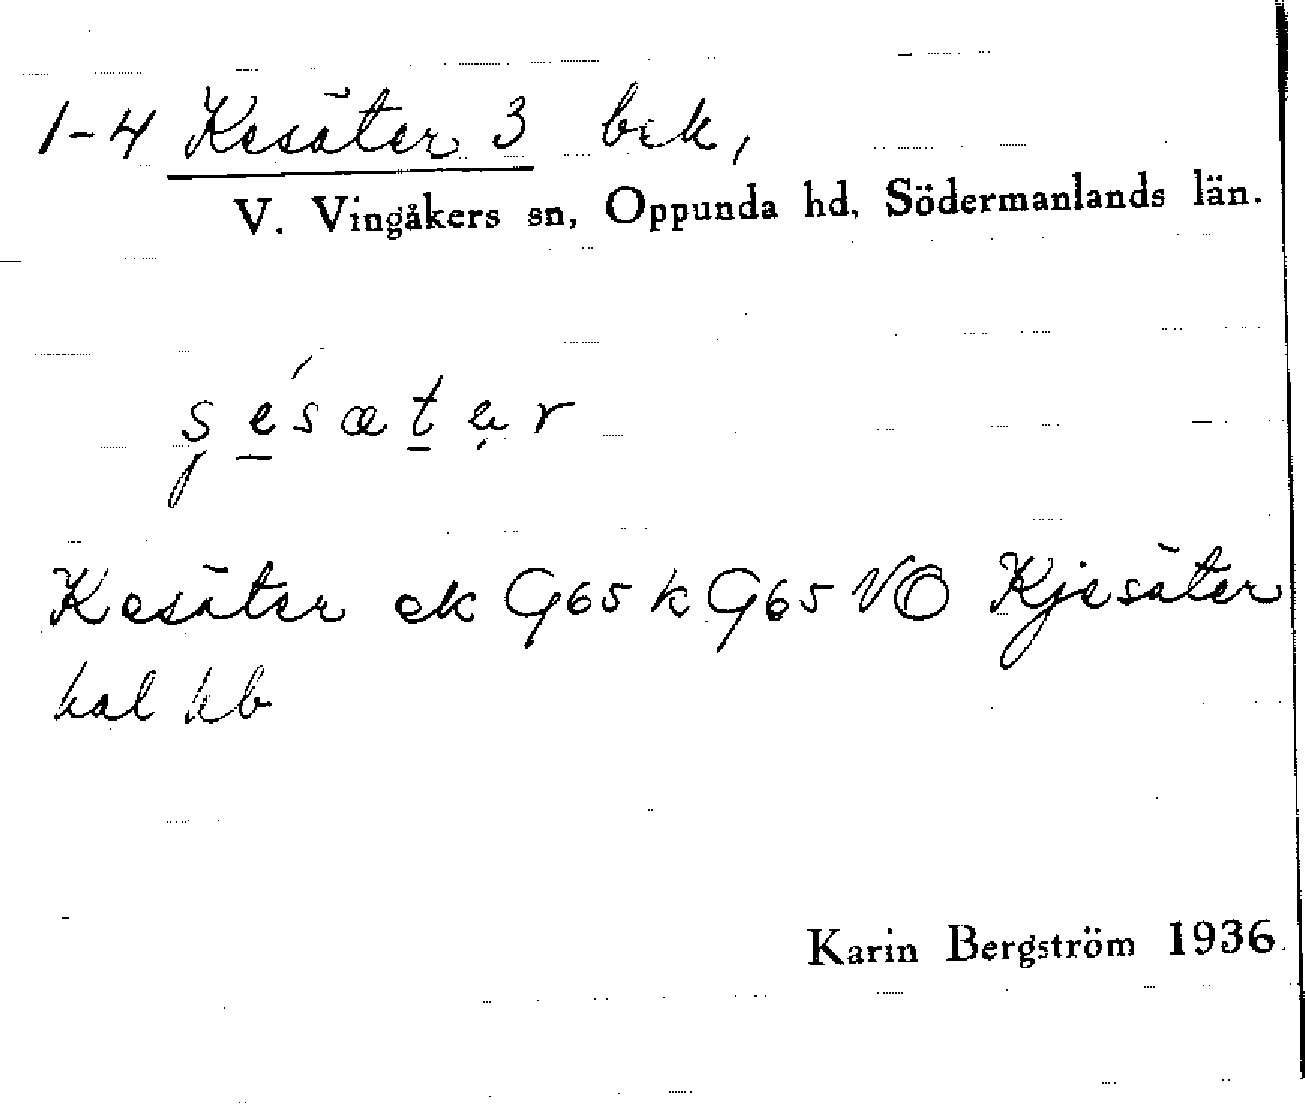 1-4 Kesäter 3 bek,
V. Vingåkers sn, Oppunda hd, Södermanlands län.
Kesäter ek G65 k G65 VO Kjesäter
hal kb
Karin Bergström 1936